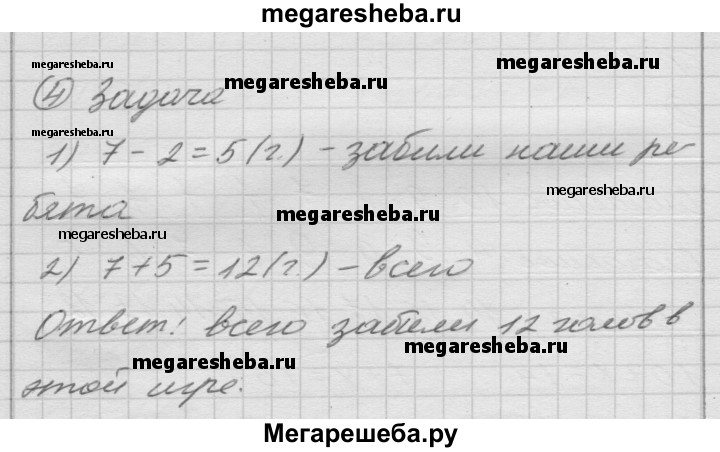 megaresheba.ru
megaresheba.ru
megaresheba.ru
megaresheba.ru
4 Задача
megaresheba.ru
1) 7 - 2 = 5 (г.) - забили наши ре-
megaresheba.ru
megaresheba.ru
бята
megaresheba.ru
2) 7 + 5 = 12 (г.) - всего
Ответ: всего забили 12 голов в
megaresheba.ru
megaresheba.ru
этой игре.
Мегарешеба.ру